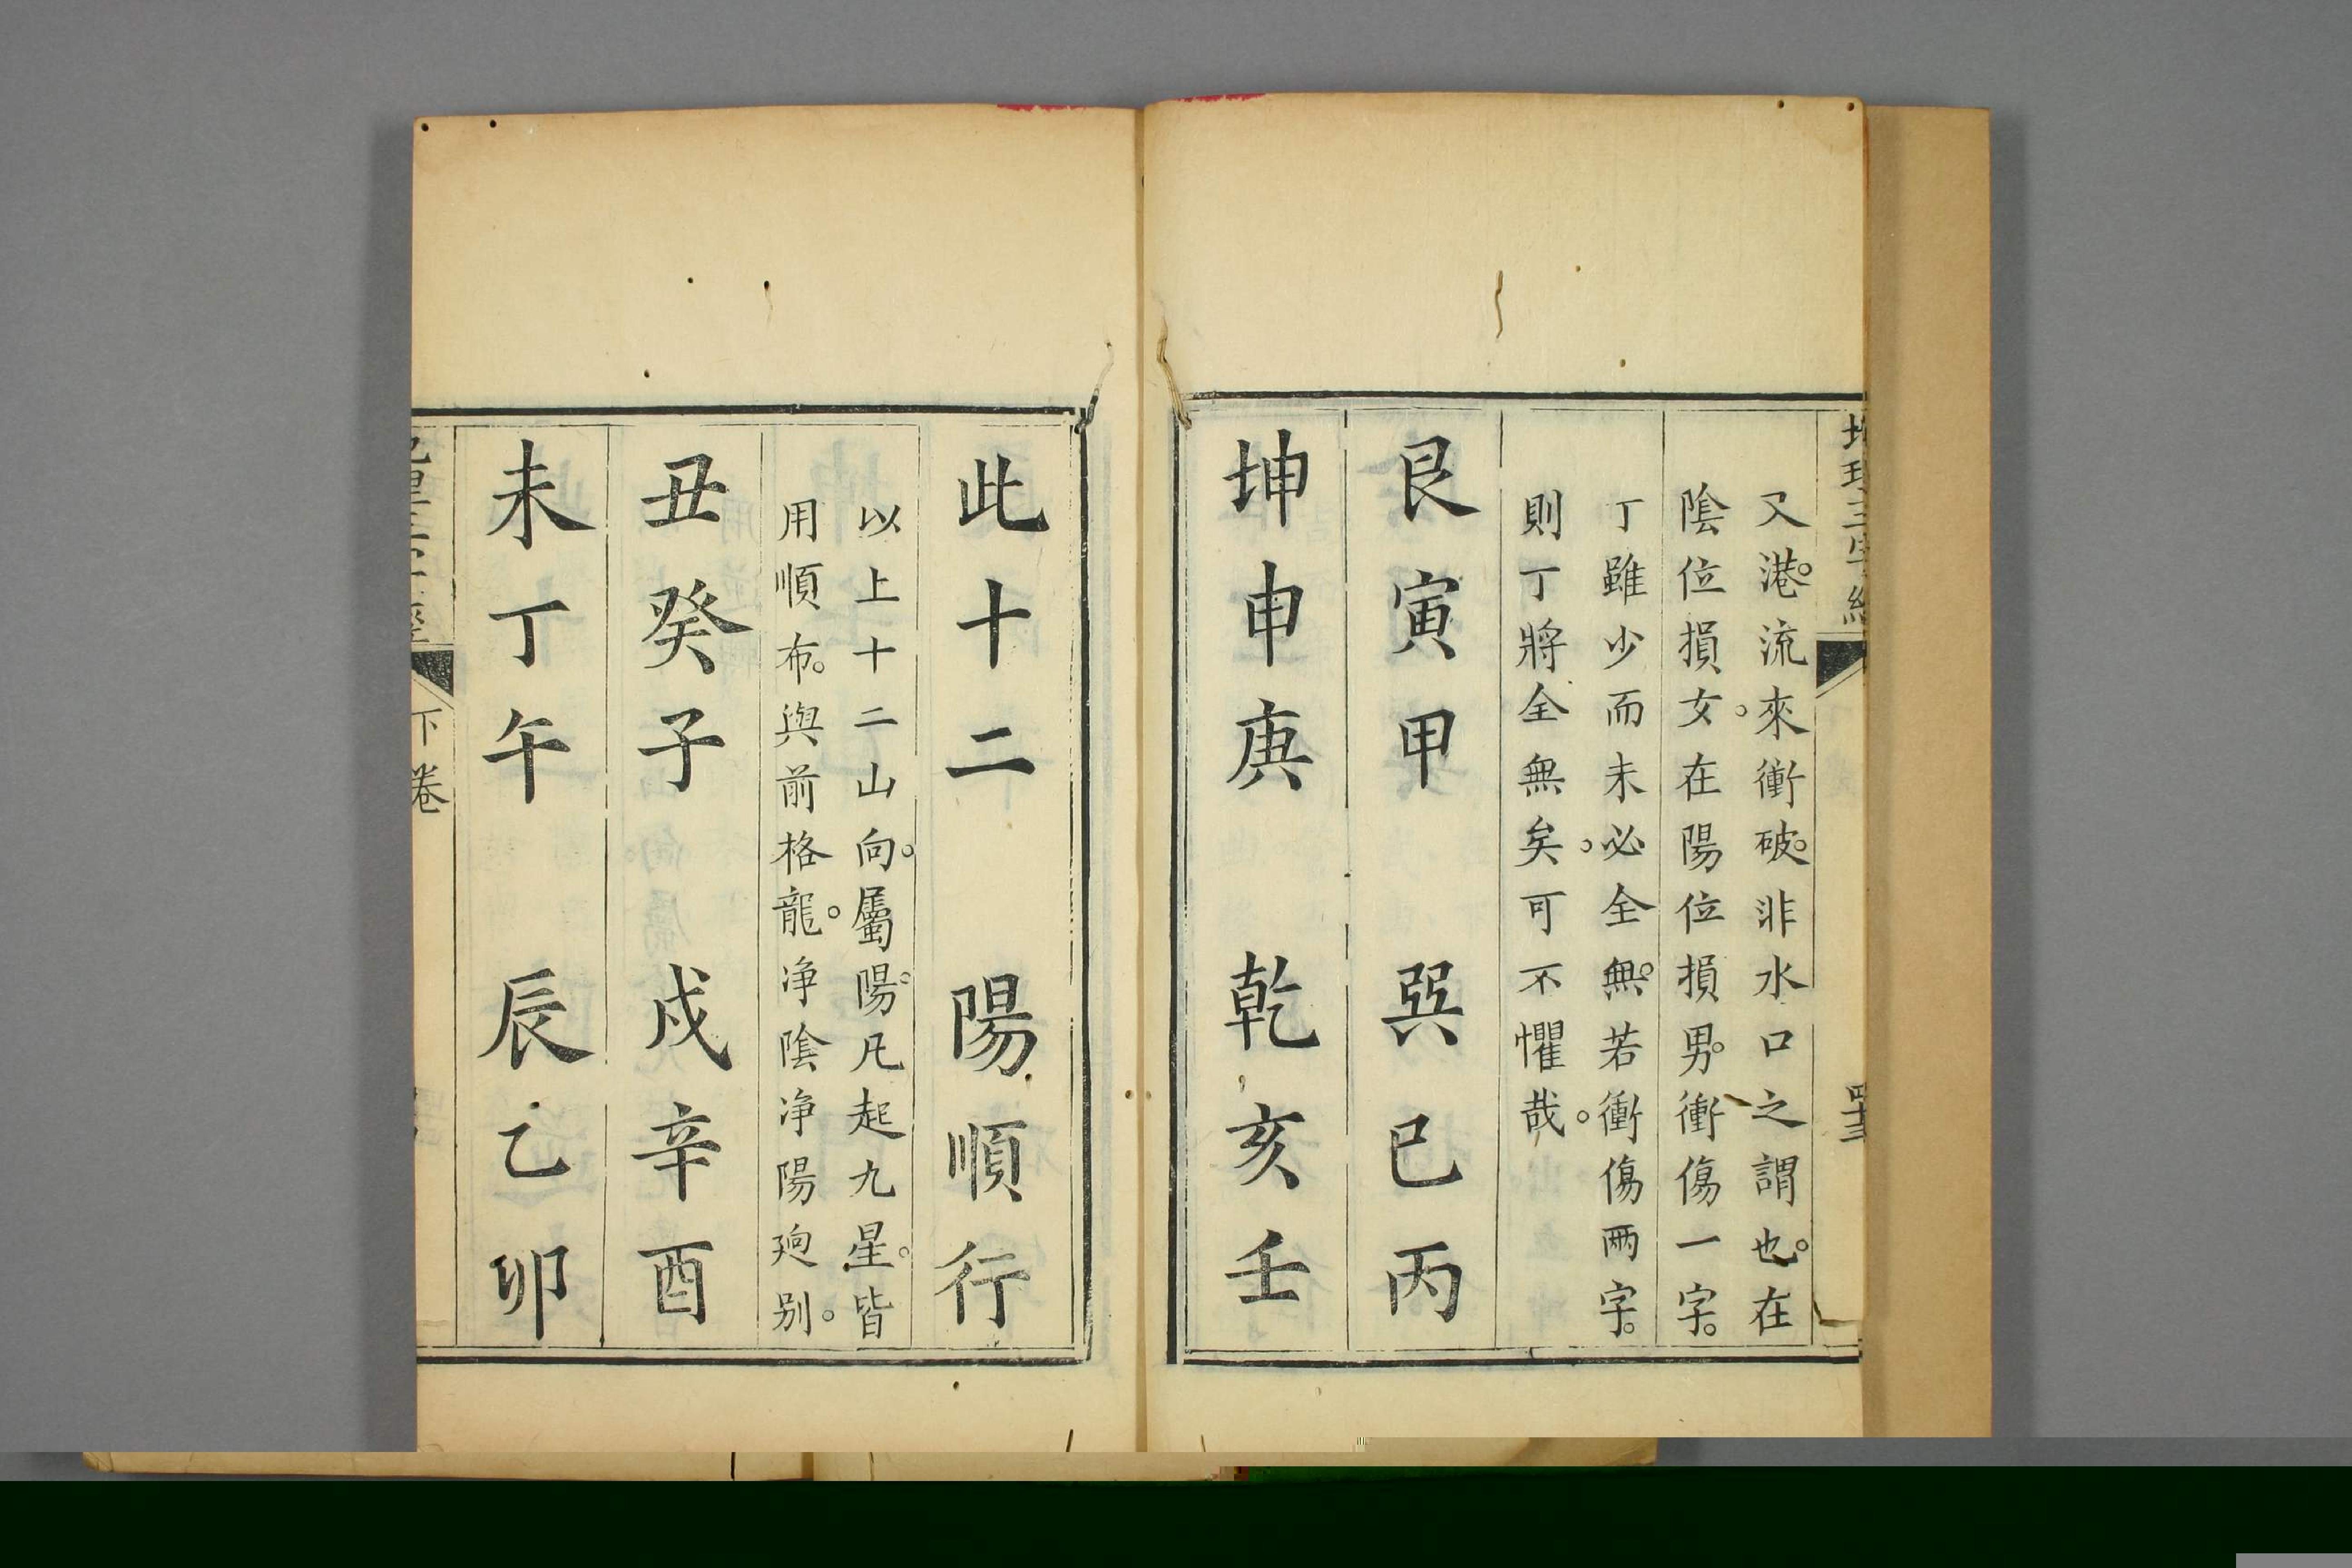 地理三字經
四十三
又港。流來衝破。非水口之謂也。在
陰位損女。在陽位損男。衝傷一字。
丁雖少而未必全無。若衝傷两字。
則丁將全無矣。可不懼哉。
艮寅甲 巽巳丙
坤申庚 乾亥壬
此十二 陽順行
以上十二山向。屬陽。凡起九星。皆
用順布。與前格龍。净陰净陽逈别。
丑癸子 戌辛酉
未丁午 辰乙卯
下卷